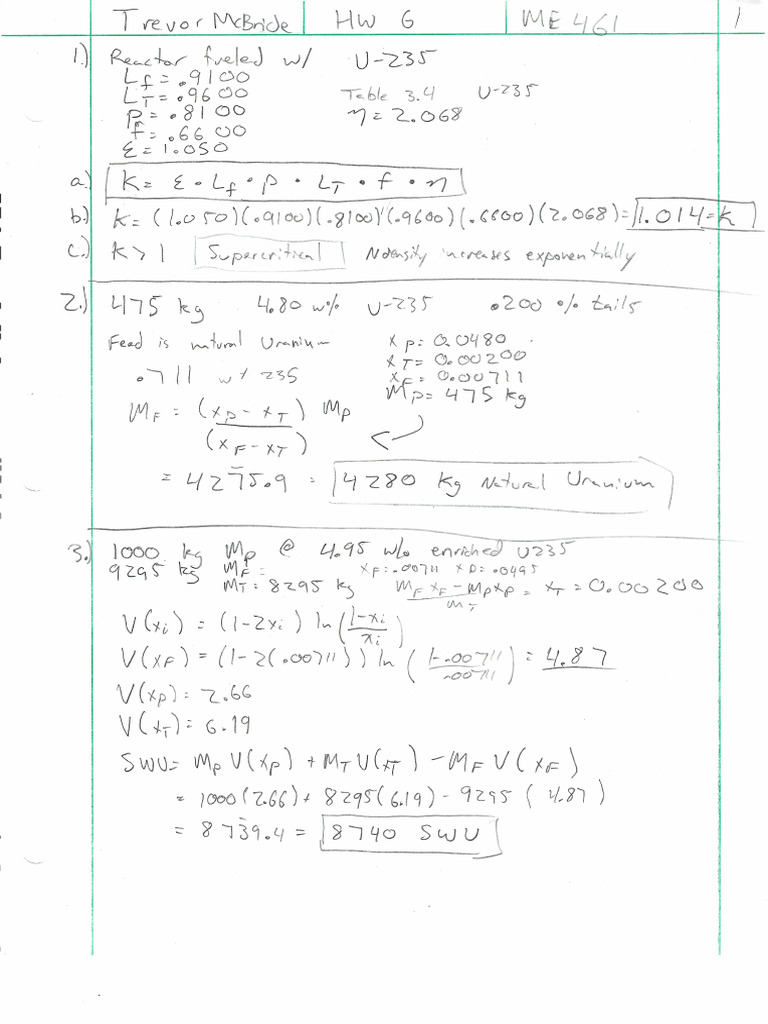 Trevor McBride | HW 6 | ME 461 1
1.) Reactor fueled w/ U-235
Lf = .9100
LT = .9600 Table 3.4 U-235
p = .8100 η = 2.068
f = .6600
ε = 1.050
a.) K = ε • Lf • p • LT • f • η
b.) K = (1.050)(.9100)(.8100)(.9600)(.6600)(2.068) = 1.014 = k
c.) K > 1 Supercritical Ndensity increases exponentially
2.) 475 kg 4.80 w% U-235 .200 % tails
Feed is natural Uranium xP = 0.0480
xT = 0.00200
.711 w% 235 xF = 0.00711
MP = 475 kg
MF = (xP - xT) MP
(xF - xT)
= 4275.9 = 4280 Kg Natural Uranium
3.) 1000 kg MP @ 4.95 w/o enriched U235
9295 kg MF = xF = .00711 xP = .0495
MT = 8295 kg MF xF - MP xP = xT = 0.00200
MT
V(xi) = (1-2xi) ln(1-xi/xi)
V(xF) = (1-2(.00711)) ln(1-.00711/.00711) = 4.87
V(xP) = 2.66
V(xT) = 6.19
SWU = MP V(xP) + MT V(xT) - MF V(xF)
= 1000(2.66) + 8295(6.19) - 9295 (4.87)
= 8739.4 = 8740 SWU